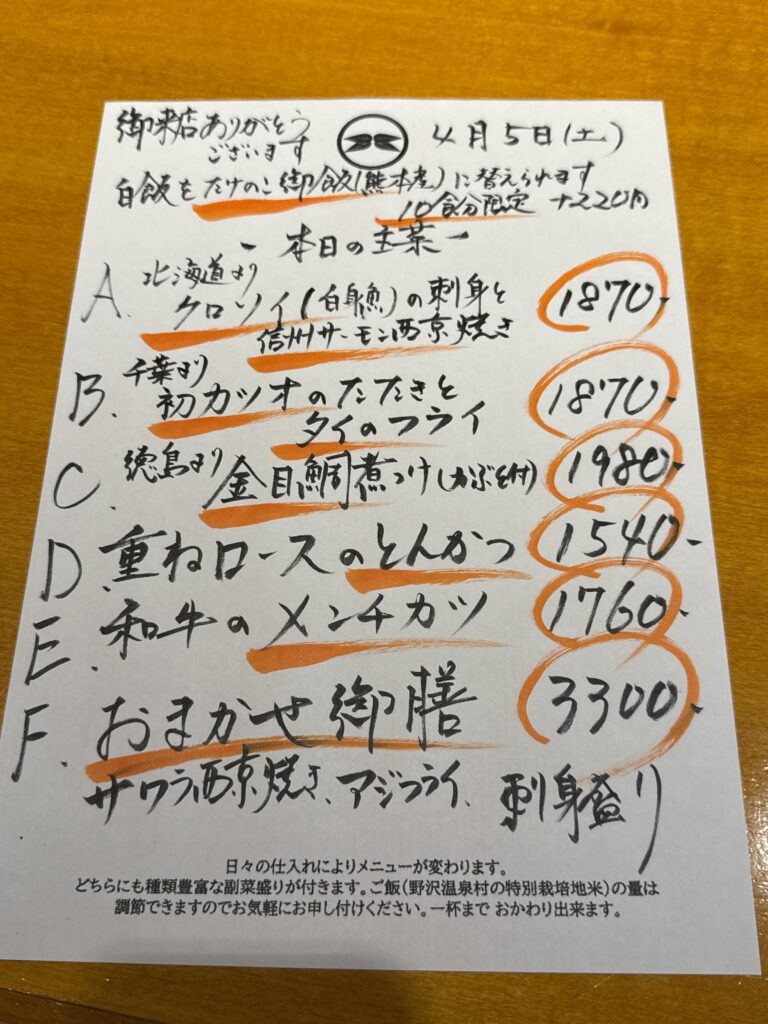 御来店ありがとう
ございます
4月5日(土)
白飯をたけのこ御飯(熊本産)に替えられます
10食分限定 +220円
- 本日の主菜 -
A. 北海道より
クロソイ(白身魚)の刺身と 1870-
信州サーモン西京焼き
B. 千葉より
初カツオのたたきと 1870-
タイのフライ
C. 徳島より 金目鯛煮つけ(かぶと付) 1980-
D. 重ねロースのとんかつ 1540-
E. 和牛のメンチカツ 1760-
F. おまかせ御膳 3300-
サワラ西京焼き、アジフライ、刺身盛り
日々の仕入れによりメニューが変わります。
どちらにも種類豊富な副菜盛りが付きます。ご飯(野沢温泉村の特別栽培地米)の量は
調節できますのでお気軽にお申し付けください。一杯まで おかわり出来ます。